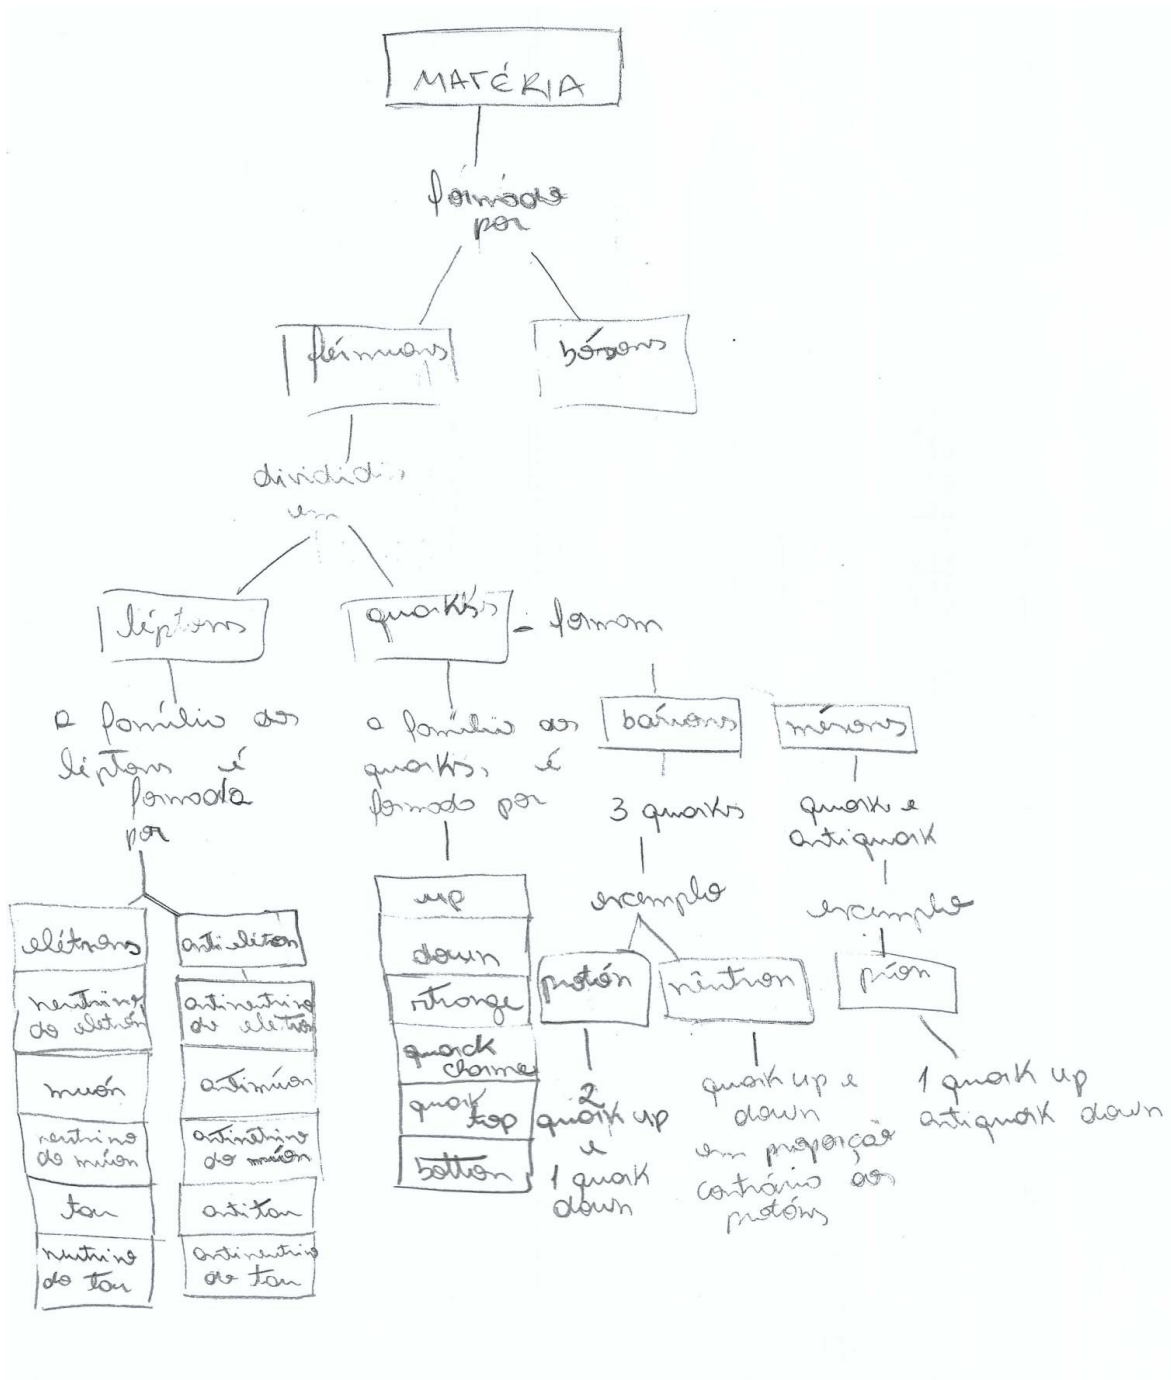 MATÉRIA
formado
por
férmions
bósons
divididos
em
léptons
quarks
formam
a família dos
léptons é
formada
por
a família dos
quarks, é
formado por
bárions
mésons
3 quarks
quark e
antiquark
exemplo
exemplo
elétrons
neutrino
do eletrón
muón
neutrino
do múon
tau
neutrino
do tau
antieletron
antineutrino
do eletron
antimúon
antineutrino
do múon
antitau
antineutrino
do tau
up
down
strange
quarck
charme
quark
top
botton
protón
nêutron
píon
2
quark up
e
1 quark
down
quark up e
down
em proporção
contrário aos
protóns
1 quark up
antiquark down